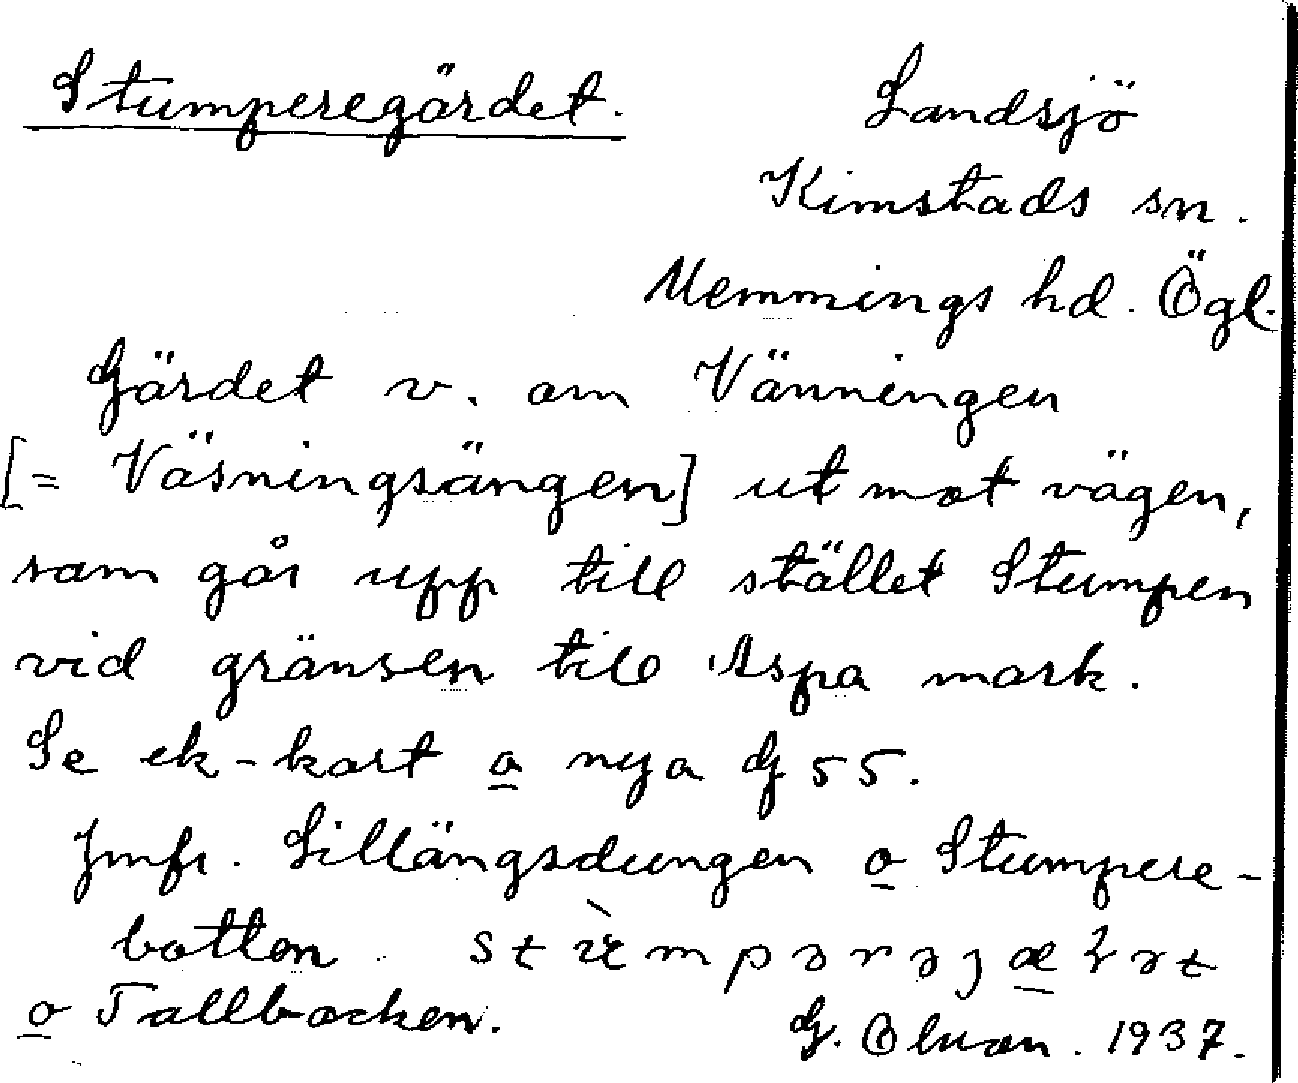 Stumperegärdet.
Landsjö
Kimstads sn.
Memmings hd. Ögl.
Gärdet v. om Vänningen
[= Väsningsängen] ut mot vägen,
som går upp till stället Stumpen
vid gränsen till Aspa mark.
Se ek-kart o nya G 55.
Jmfr. Sillängsdungen o Stumpere-
botten.
o Tallbacken.
G. Olson. 1937.